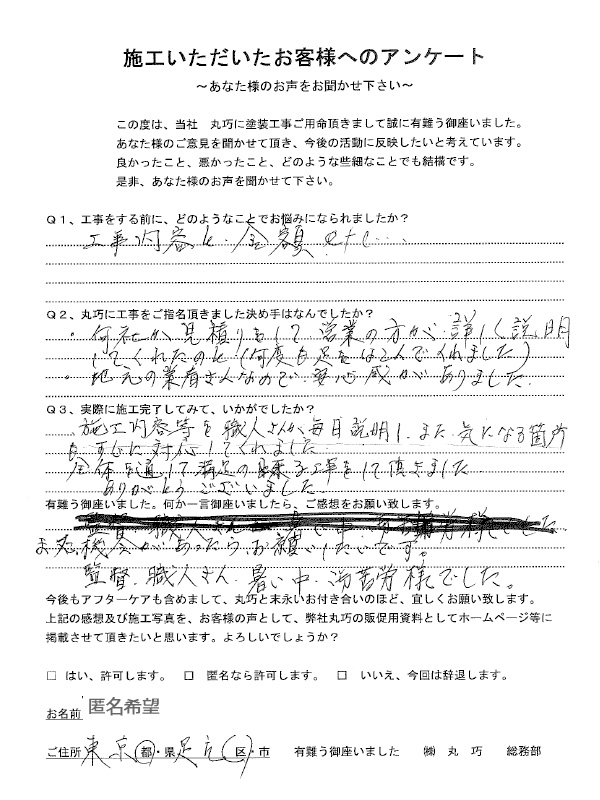 施工いただいたお客様へのアンケート
～あなた様のお声をお聞かせ下さい～
この度は、当社　丸巧に塗装工事ご用命頂きまして誠に有難う御座いました。
あなた様のご意見を聞かせて頂き、今後の活動に反映したいと考えています。
良かったこと、悪かったこと、どのような些細なことでも結構です。
是非、あなた様のお声を聞かせて下さい。
Ｑ１、工事をする前に、どのようなことでお悩みになられましたか？
工事内容と金額 etc…
Ｑ２、丸巧に工事をご指名頂きました決め手はなんでしたか？
・何社か見積りをして営業の方が詳しく説明
してくれたのと(何度も足をはこんでくれました)
・地元の業者さんなので安心感がありました.
Ｑ３、実際に施工完了してみて、いかがでしたか？
施工内容等を職人さんが毎日説明し、また気になる箇所
もすぐに対応してくれました
全体を通して満足の出来る工事をして頂きました
ありがとうございました
有難う御座いました。何か一言御座いましたら、ご感想をお願い致します。
また機会があったらお願いしたいです。
監督、職人さん、暑い中、御苦労様でした。
今後もアフターケアも含めまして、丸巧と末永いお付き合いのほど、宜しくお願い致します。
上記の感想及び施工写真を、お客様の声として、弊社丸巧の販促用資料としてホームページ等に
掲載させて頂きたいと思います。よろしいでしょうか？
□ はい、許可します。 □ 匿名なら許可します。 □ いいえ、今回は辞退します。
お名前 匿名希望
ご住所 東京都・県足立区・市 有難う御座いました ㈱ 丸 巧 総務部